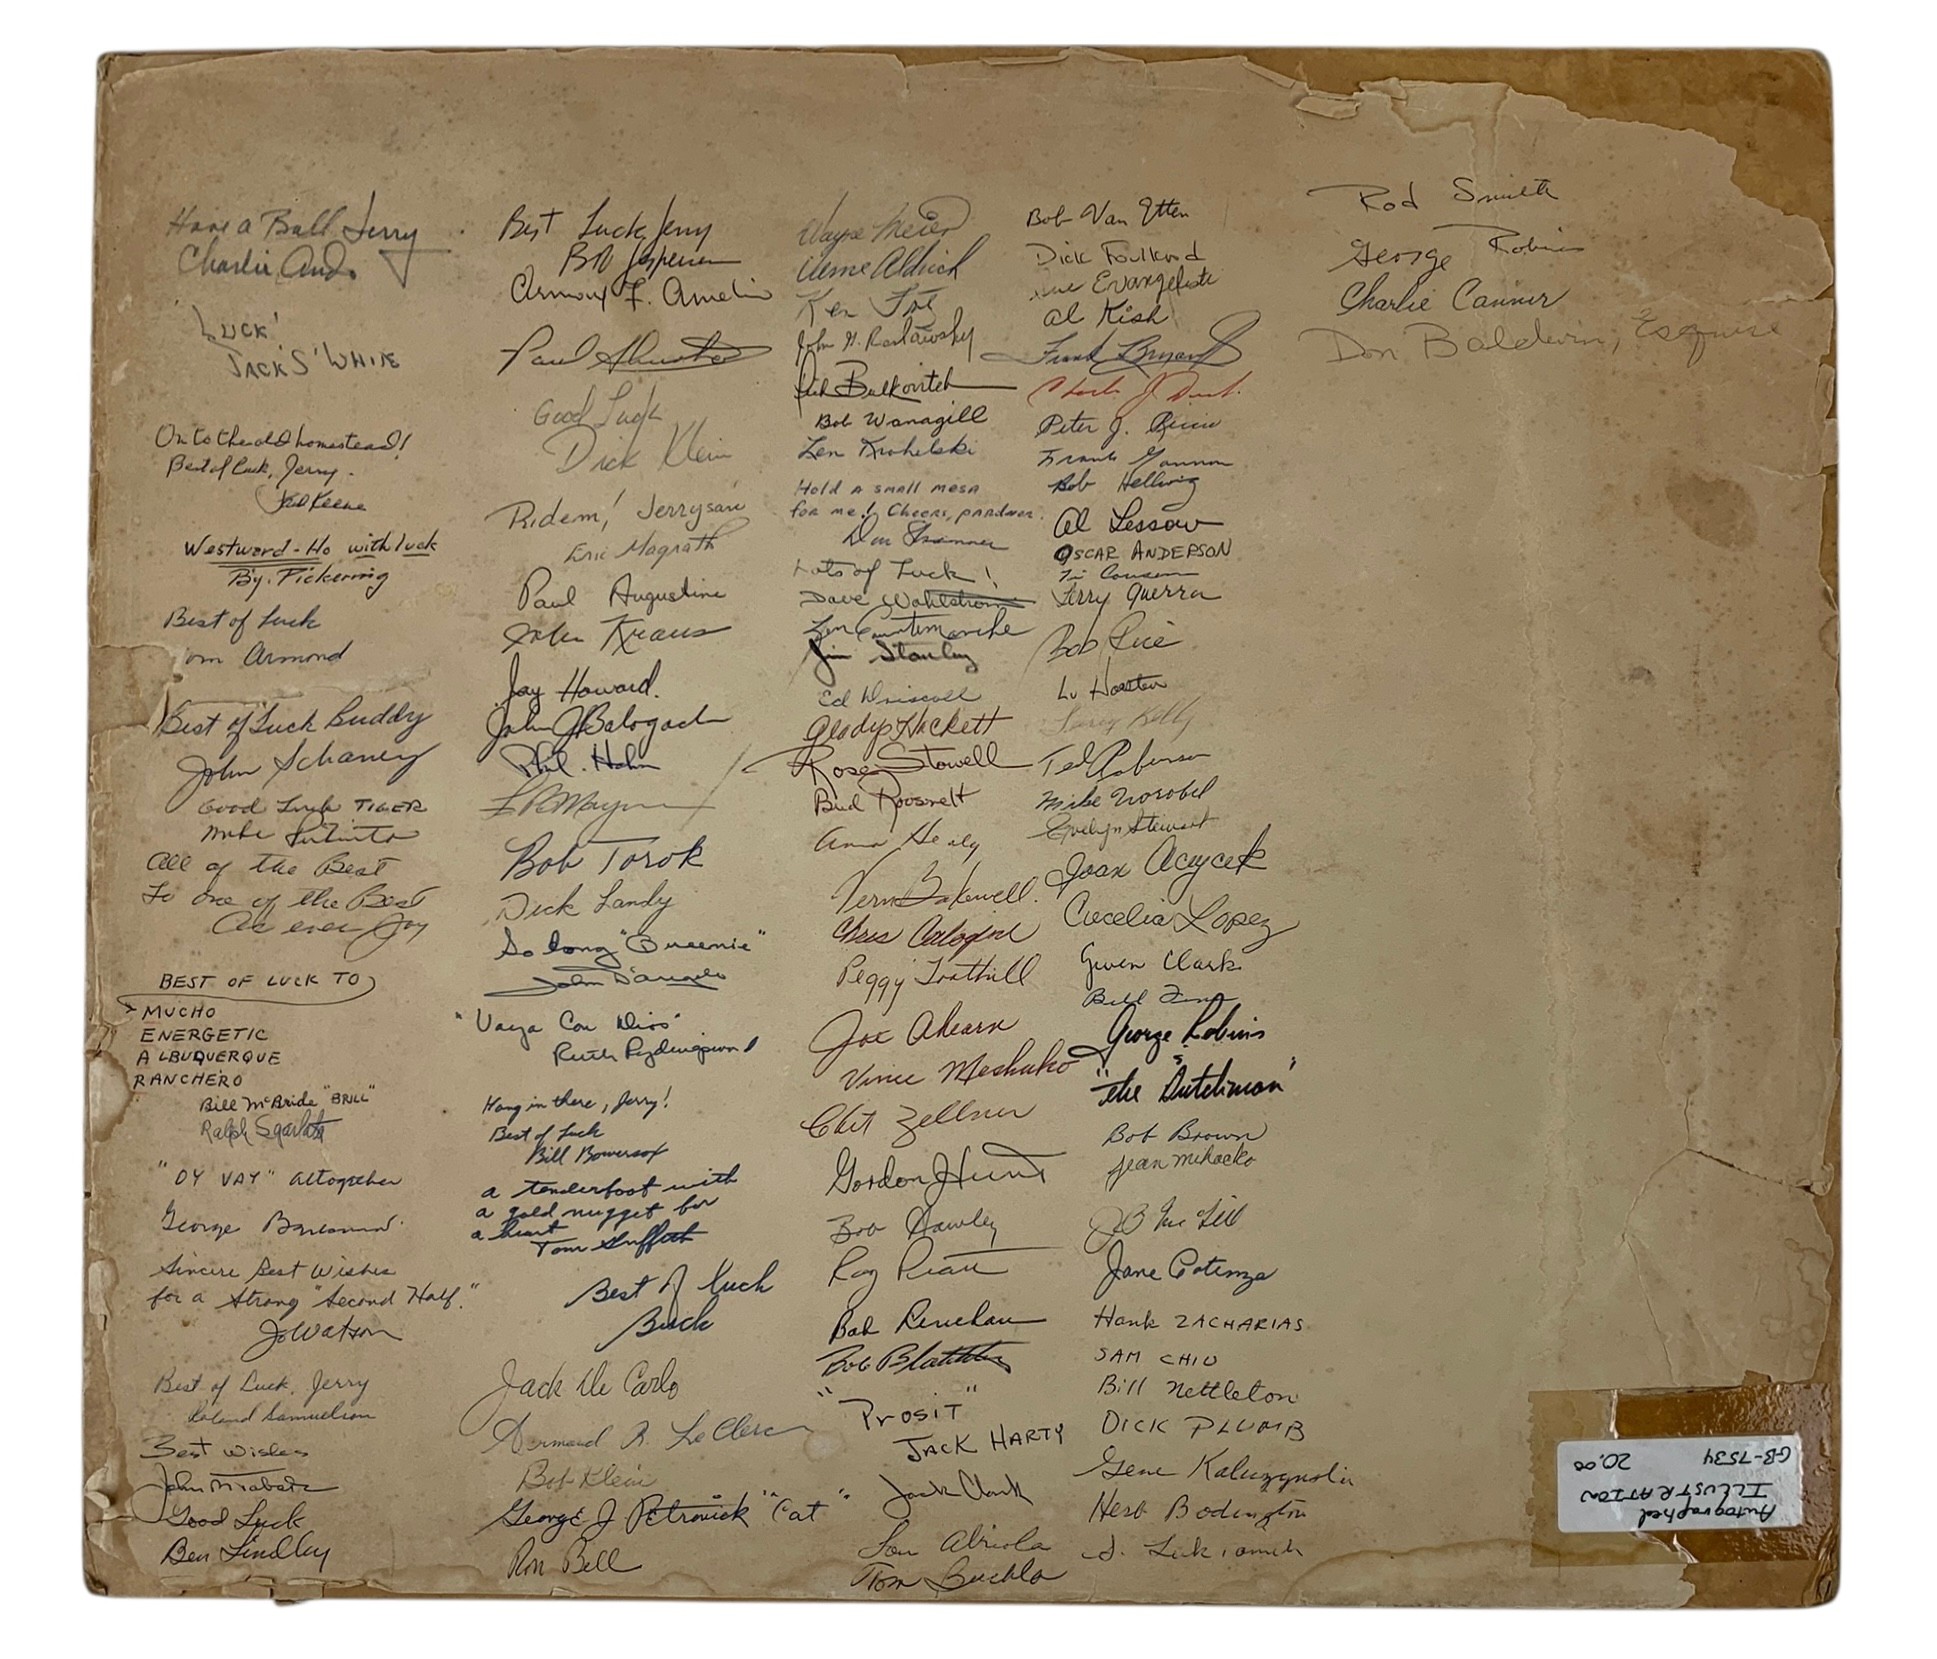 Have a Ball Jerry
Charlie Ando
'Luck'
Jack 'S' White
On to the old homestead!
Best of luck, Jerry.
Keene
Westward-Ho with luck
By. Pickering
Best of Luck
Tom Armond
Best of Luck Buddy
John Schaney
Good Luck TIGER
Mike
All of the Best
To one of the Best
As ever Joy
BEST OF LUCK TO
MUCHO
ENERGETIC
ALBUQUERQUE
RANCHERO
Bill McBride "BRILL"
Ralph Sgarlata
"OY VAY" Altogether
George
Sincere Best Wishes
for a Strong "Second Half."
Jo Watson
Best of Luck, Jerry
Roland Samuelson
Best Wishes
John
Good Luck
Ben Lindley
Best Luck Jerry
Bob Jespersen
Armony F. Amelio
Paul
Good Luck
Dick Klein
Ridem, Jerrysan
Eric Magrath
Paul Augustine
John Kraus
Jay Howard.
John J. Balogach
Phil. Hahn
Bob Torok
Dick Landy
So long "Queenie"
John D'Angelo
"Vaya Con Dios"
Ruth
Hang in there, Jerry!
Best of Luck
Bill Bowersox
a tenderfoot with
a gold nugget for
a heart
Tom Griffith
Best of luck
Buck
Jack De Carlo
Armand R. LeClerc
Bob Klein
George J Petrovick "Cat"
Ron Bell
Wayne Meier
Verne Aldrich
Ken
John
Bulkovitch
Bob Wanagill
Len Krohelski
Hold a small mesa
for me! Cheers, pardner.
Don
Lots of Luck!
Dave Wahlstrom
Len Countermarche
Jim Stanley
Ed Driscoll
Gladys Hackett
Rosey Stowell
Bud Roosevelt
Anna Healy
Vern Bakewell.
Chris Calogine
Peggy Toothill
Joe Ahearn
Vince Meshako
Chet Zellner
Gordon Hunt
Bob Hawley
Ray
Bob Renehan
Bob
"Prosit"
JACK HARTY
Jack Clark
Lou Abriola
Tom Buchla
Bob Van Etten
Dick
Evangeliste
Al Kish
Frank
Charles J.
Peter J.
Frank Gannon
Bob Hellwig
Al Lessow
OSCAR ANDERSON
Jerry Guerra
Bob Rice
Lu Horsten
Larry Kelly
Ted Roberson
Mike Worobel
Evelyn Stewart
Joan Acycek
Cecelia Lopez
Gwen Clark
Bill
George Robins
"The Dutchman"
Bob Brown
Jean Mihocko
JB McGill
Jane Potenza
Hank ZACHARIAS
SAM CHIU
Bill Nettleton
DICK PLUMB
Gene
Herb Bodington
Rod Smith
George Robins
Charlie Canner
Don Baldwin, Esquire
Autographed
ILLUSTRATION
GB-7534 20.00